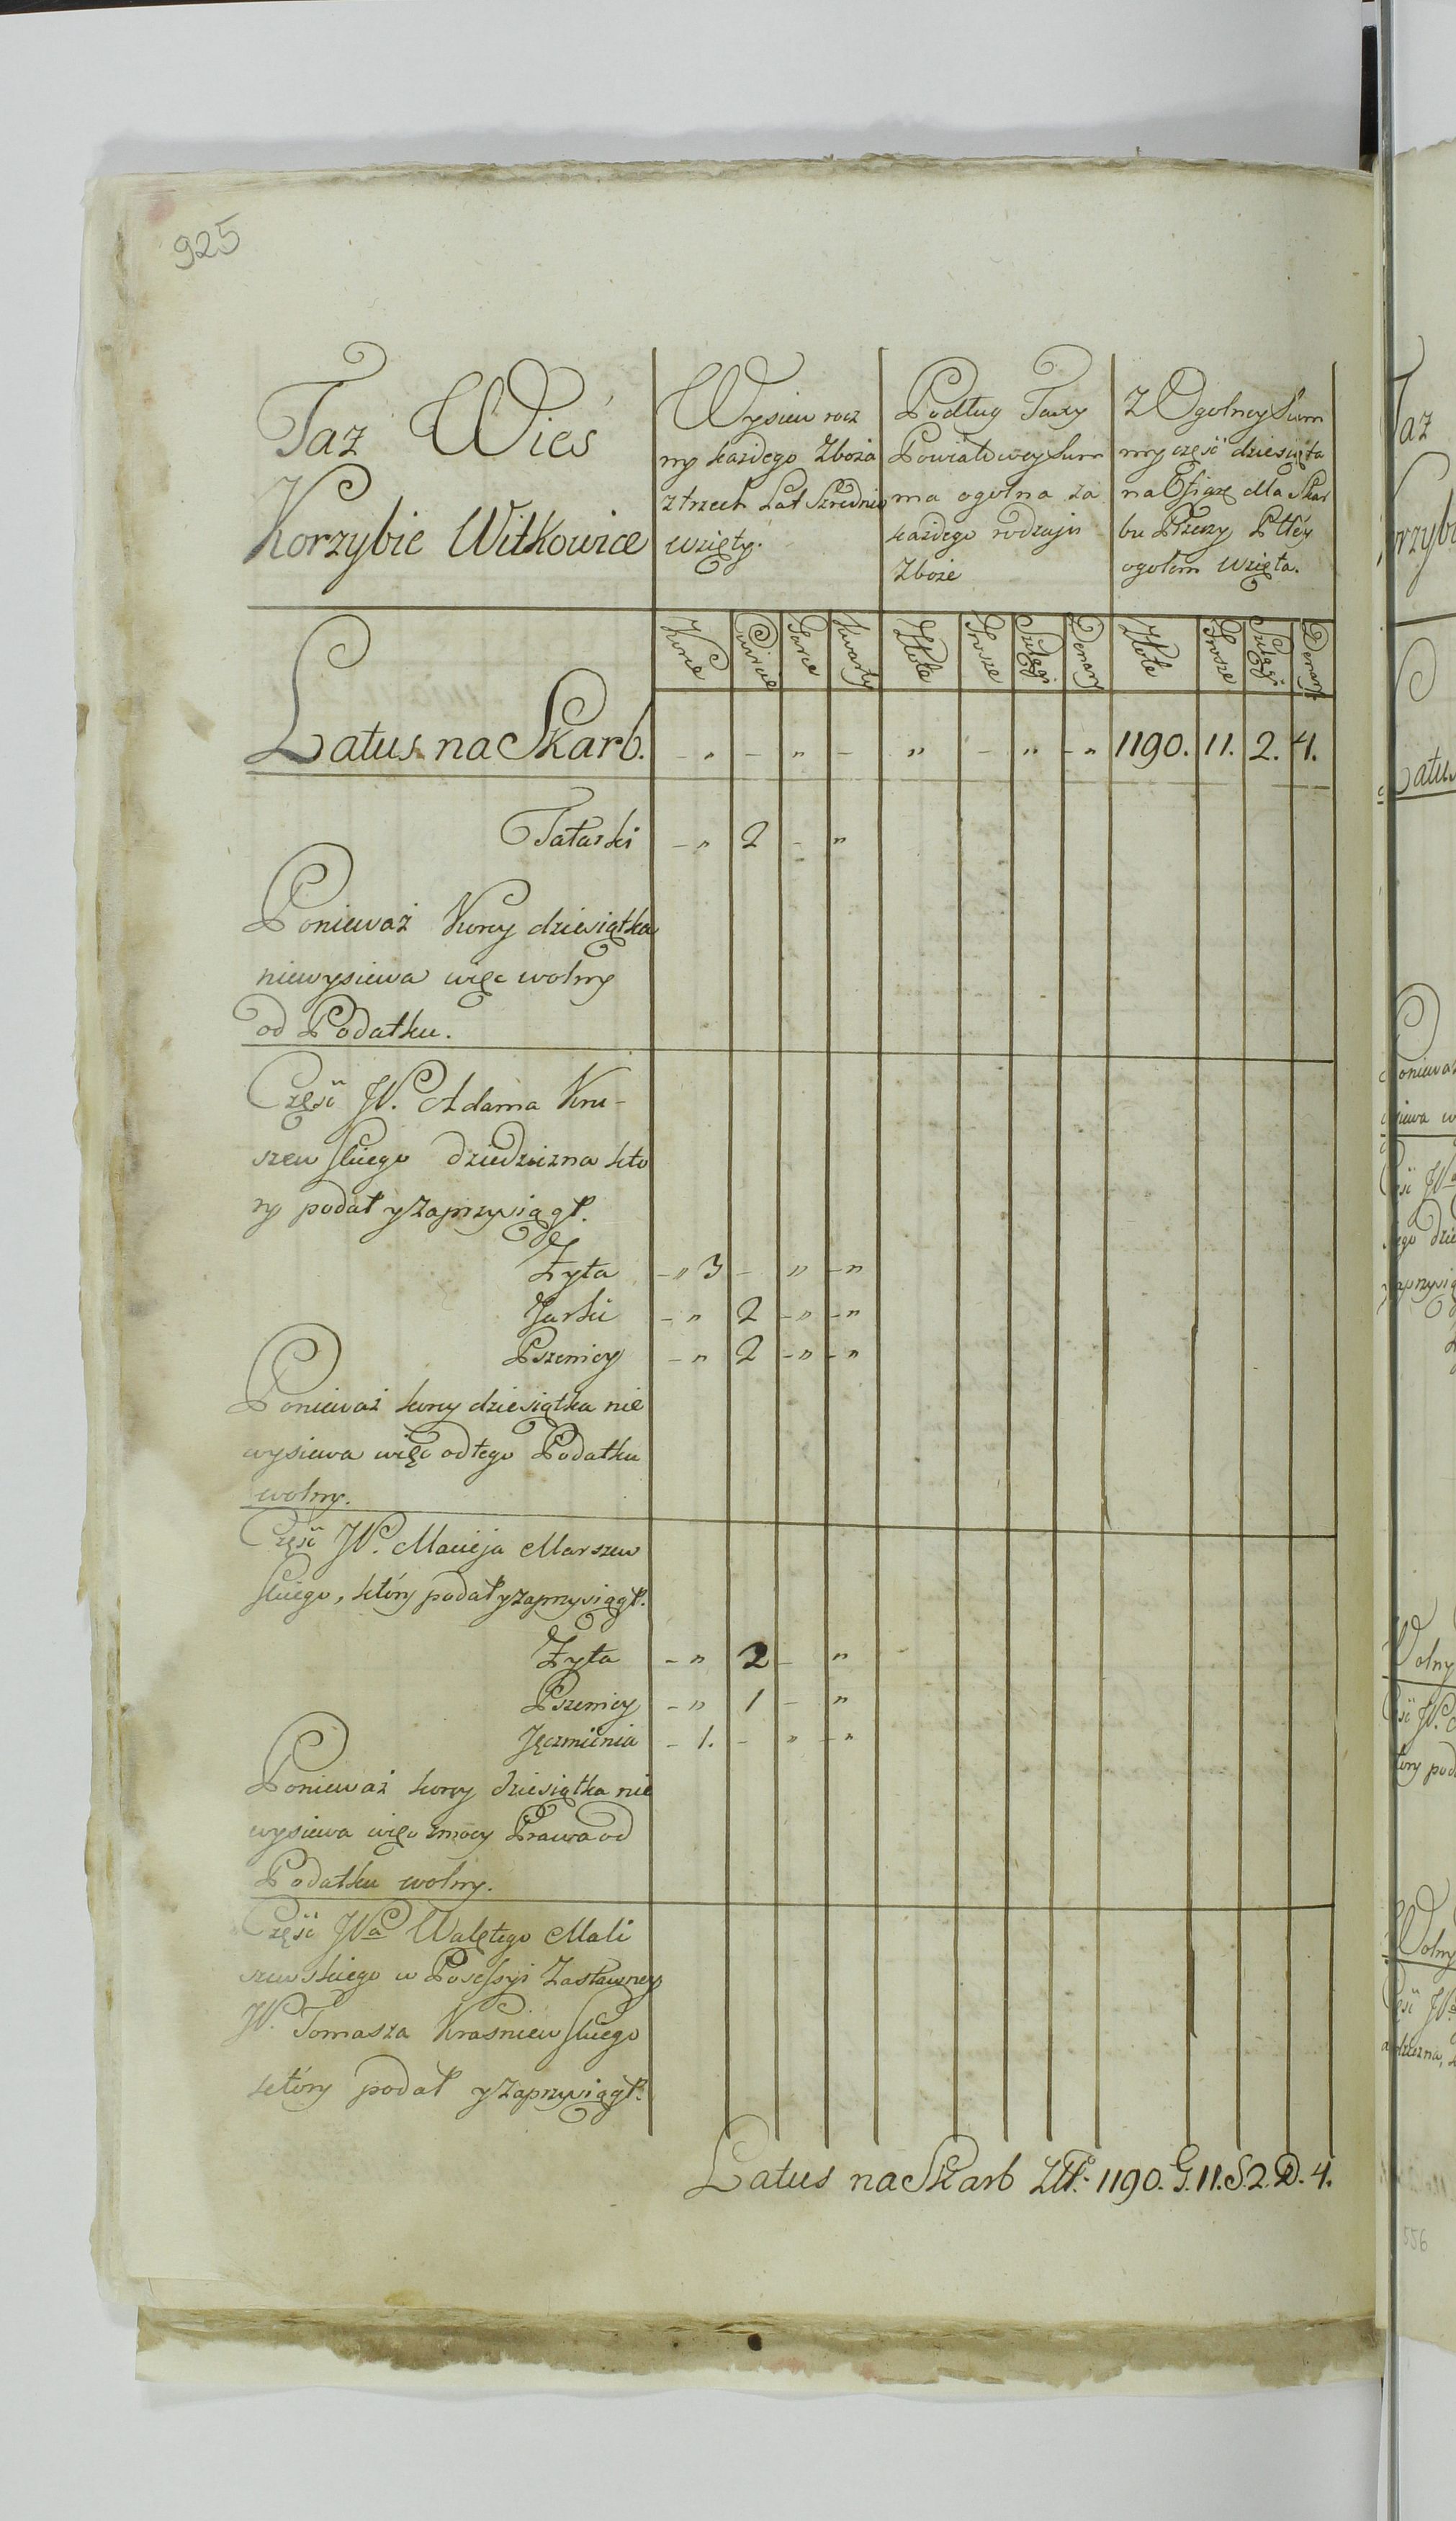 925
Taż Wieś
Korzybie Witkowice
Wysiew rocz
ny każdego Zboża
z trzech Lat Szrednio
wzięty.
Podług Taxy
Powiatowey Sum
ma ogolna za
każdego rodzaju
Zboże
Z Ogolney Sum
my część dziesiąta
na Ofiarę dla Skar
bu Rzeczy Pltéy
ogołem wzięta.
Korce Cwierci Garce Kwarty Złote Grosze Szelągi Denary Złote Grosze Szelągi Denary
Latus na Skarb. - „ - „ - „ - „ - „ 1190. 11. 2. 4.
Tatarki - „ 2 - „
Ponieważ Korcy dziesiątka
niewysiewa więc wolny
od Podatku.
Część W. Adama Kru-
szewskiego dziedziczna kto
ry podał y zaprzysiągł.
Żyta - „ 3 - „ - „
Jarki - „ 2 - „ - „
Pszenicy - „ 2 - „ - „
Ponieważ korcy dziesiątka nie
wysiewa więc od tego Podatku
wolny.
Część W. Macieja Marszew
skiego, który podał y zaprzysiągł.
Żyta - „ 2 - „
Pszenicy - „ 1 - „
Jęczmienia - 1. - „ - „
Ponieważ korcy dziesiątka nie
wysiewa więc z mocy Prawa od
Podatku wolny.
Część Wa Walętego Mali
szewskiego w Posessyi Zastawney
W. Tomasza Krasniewskiego
który podał y zaprzysiągł.
Latus na Skarb Złł. 1190. G. 11. S. 2. D. 4.